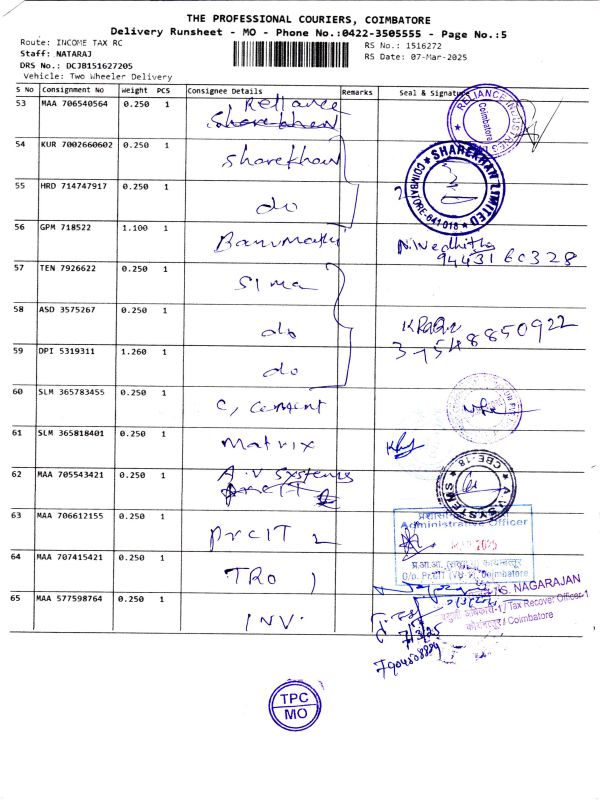 THE PROFESSIONAL COURIERS, COIMBATORE
Delivery Runsheet - MO - Phone No.:0422-3505555 - Page No.:5
Route: INCOME TAX RC
RS No.: 1516272
Staff: NATARAJ
RS Date: 07-Mar-2025
DRS No.: DCJB151627205
Vehicle: Two Wheeler Delivery
S No Consignment No Weight PCS Consignee Details Remarks Seal & Signature
53 MAA 706540564 0.250 1 Reliance
Sharekhan
RELIANCE INDUSTRIES
Coimbatore
54 KUR 7002660602 0.250 1 Sharekhan
SHAREKHAN LIMITED
COIMBATORE-641 018
55 HRD 714747917 0.250 1 do
2
56 GPM 718522 1.100 1 Banumathi
9443160328
57 TEN 7926622 0.250 1 Sima
58 ASD 3575267 0.250 1 do
59 DPI 5319311 1.260 1 do
60 SLM 365783455 0.250 1 C, cement
61 SLM 365818401 0.250 1 Matrix
62 MAA 705543421 0.250 1 A.V Systems
PrCIT 2
A.V. SYSTEMS
CBE-18
63 MAA 706612155 0.250 1 PrCIT 2
Administrative Officer
2025
Coimbatore
64 MAA 707415421 0.250 1 TRO )
S. NAGARAJAN
Tax Recovery Officer-1
कोयंबत्तूर / Coimbatore
65 MAA 577598764 0.250 1 INV.
7/3/25
TPC
MO